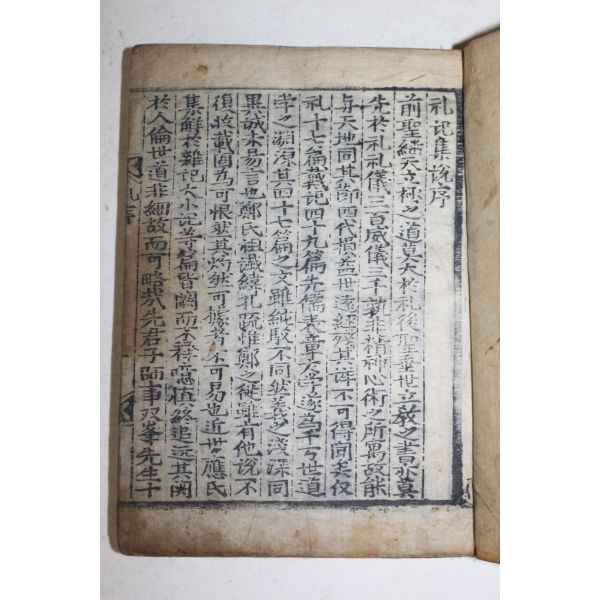 礼記集說序
前聖継天立極之道莫大於礼後聖垂世立教之書亦莫
先於礼礼儀三百威儀三千孰非精神心術之所寓故能
与天地同其節四代損益世遠経残其詳不可得聞矣仅
礼十七篇戴記四十九篇先儒表章学遂為千万世道
学之淵源其四十七篇之文雖純駁不同然義之浅深同
異誠未易言也鄭氏祖讖緯孔疏惟鄭之従雖有他説不
復收載固為可恨然其灼然可據者不可易也近世應氏
集解於雜記大小記等篇皆闕而不釋噫慎終追遠其関
於人倫世道非細故而可略哉先君子師事双峯先生十
礼序